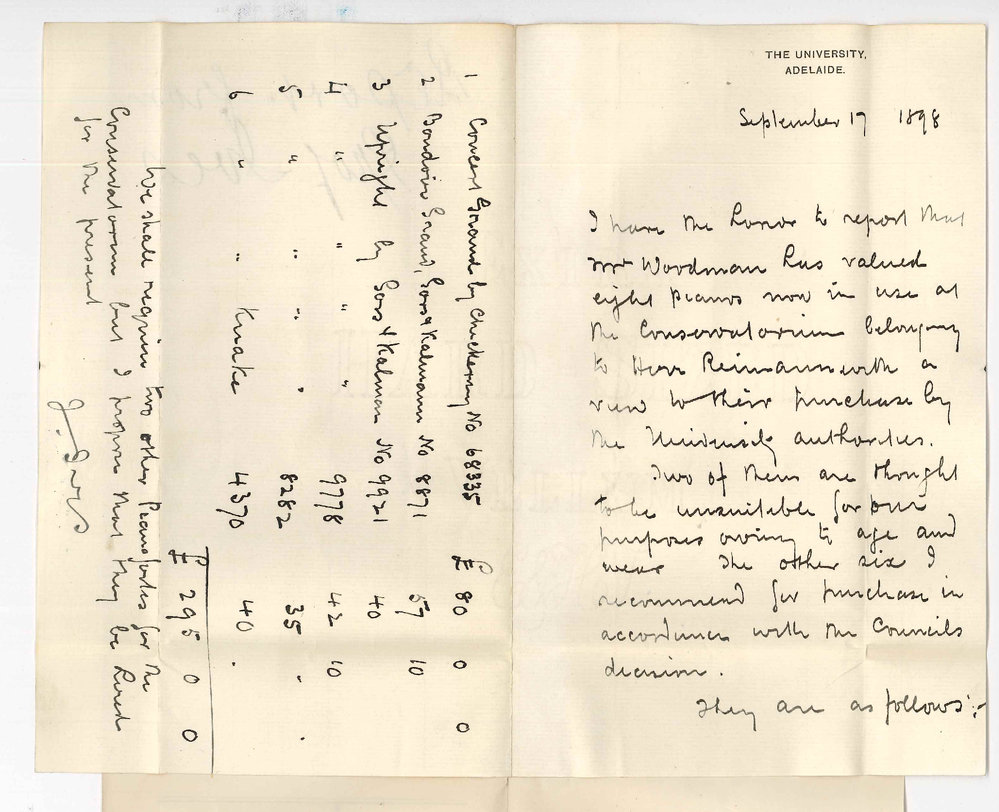 THE UNIVERSITY,
ADELAIDE.
September 17 1898
I have the honor to report that
Mr Woodman has valued
eight pianos now in use at
the Conservatorium belonging
to Herr Reimann with a
view to their purchase by
the University authorities.
Two of them are thought
to be unsuitable for our
purposes owing to age and
wear The other six I
recommend for purchase in
accordance with the Councils
decision.
They are as follows:-
1 Concert Grand by Chickering No 68335 £ 80 0 0
2 Boudoir Grand, Gors & Kalmann No 8871 57 10
3 Upright by Gors & Kalman No 9921 40
4 " " " " 9778 42 10
5 " " " " 8282 35 . .
6 " " Knake 4370 40 .
£ 295 0 0
We shall require two other Pianofortes for the
Conservatorium but I propose that they be hired
for the present
J. Ives